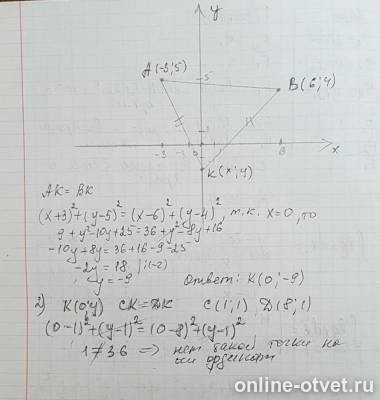 y
A(-3;5)
5
B(6;4)
1
-3
-1
0
6
x
K(x;y)
AK = BK
(x+3)²+(y-5)²=(x-6)²+(y-4)², т.к. x=0, то
9+y²-10y+25=36+y²-8y+16
-10y+8y=36+16-9-25
-2y=18 |:(-2)
y=-9
Ответ: K(0;-9)
2) K(0;y) CK=DK C(1;1) D(8;1)
(0-1)²+(y-1)²=(0-8)²+(y-1)²
1≠36 => нет такой точки на
оси ординат
online-otvet.ru